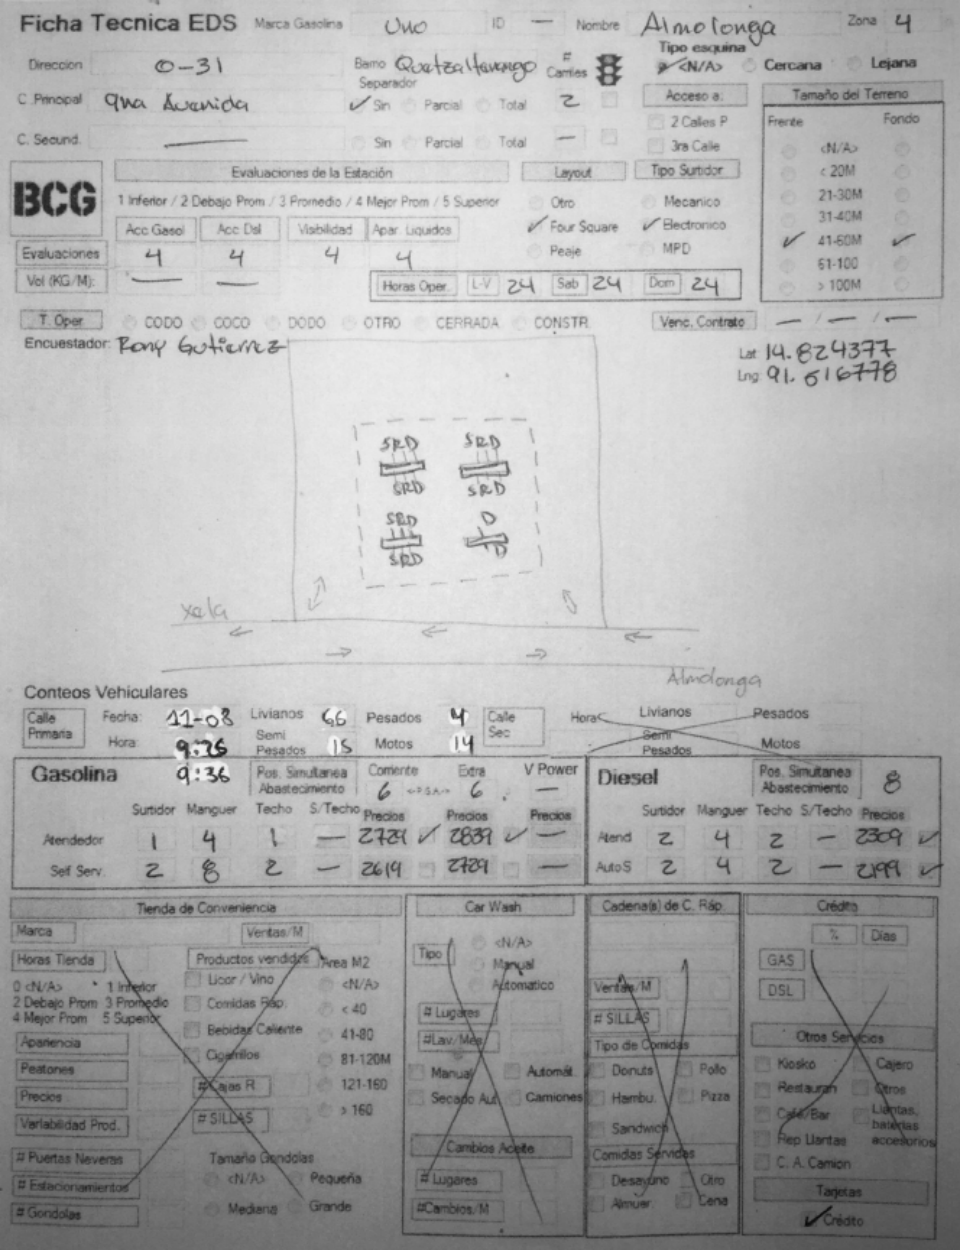 Ficha Tecnica EDS Marca Gasolina Uno ID — Nombre Almolonga Zona 4
Direccion 0-31 Barrio Quetzaltenango # Carriles Tipo esquina <N/A> Cercana Lejana
C. Principal 9na Avenida Separador Sin Parcial Total 2 Acceso a: Tamaño del Terreno
2 Calles P Frente Fondo
C. Secund. — Sin Parcial Total — 3ra Calle <N/A>
BCG Evaluaciones de la Estación Layout Tipo Surtidor < 20M
1 Inferior / 2 Debajo Prom / 3 Promedio / 4 Mejor Prom / 5 Superior Otro Mecanico 21-30M
Acc Gasol Acc Dsl Visibilidad Apar. Liquidos Four Square Electronico 31-40M
Evaluaciones 4 4 4 4 Peaje MPD 41-60M
61-100
Vol (KG/M): — — Horas Oper. L-V 24 Sab 24 Dom 24 > 100M
T. Oper CODO COCO DODO OTRO CERRADA CONSTR. Venc. Contrato — / — / —
Encuestador: Rony Gutierrez
Lat 14.824377
Lng 91.516778
SRD SRD
SRD SRD
SRD D
SRD D
Xela
Almolonga
Conteos Vehiculares
Calle Primaria Fecha: 11-08 Livianos 66 Pesados 4 Calle Sec Hora: Livianos Pesados
Hora: 9:26 Semi Pesados 15 Motos 14 Semi Pesados Motos
Gasolina 9:36 Pos. Simultanea Abastecimiento Corriente 6 <->SA-> Extra 6 V Power — Diesel Pos. Simultanea Abastecimiento 8
Surtidor Manguer Techo S/Techo Precios Precios Precios Surtidor Manguer Techo S/Techo Precios
Atendedor 1 4 1 — 2729 2839 — Atend 2 4 2 — 2309
Self Serv. 2 8 2 — 2619 2729 — Auto S 2 4 2 — 2199
Tienda de Conveniencia Car Wash Cadena(s) de C. Ráp. Crédito
Marca Ventas/M % Dias
Horas Tienda Productos vendidos Area M2 Tipo <N/A> GAS
0 <N/A> 1 Inferior Licor / Vino <N/A> Manual
2 Debajo Prom 3 Promedio Comidas Ráp. < 40 Automatico Ventas/M DSL
4 Mejor Prom 5 Superior Bebidas Caliente 41-80 # Lugares # SILLAS
Apariencia Cigarrillos 81-120M #Lav/Mes Tipo de Comidas Otros Servicios
Peatones # Cajas R. 121-160 Manual Automát. Donuts Pollo Kiosko Cajero
Precios # SILLAS > 160 Secado Aut Camiones Hambu. Pizza Restauran Otros
Variabilidad Prod. Sandwich Café/Bar Llantas, baterias accesorios
# Puertas Neveras Tamaño Gondolas Cambios Aceite Comidas Servidas Rep Llantas
# Estacionamientos <N/A> Pequeña # Lugares Desayuno Otro C. A. Camion
# Gondolas Mediana Grande #Cambios/M Almuer Cena Tarjetas
Crédito